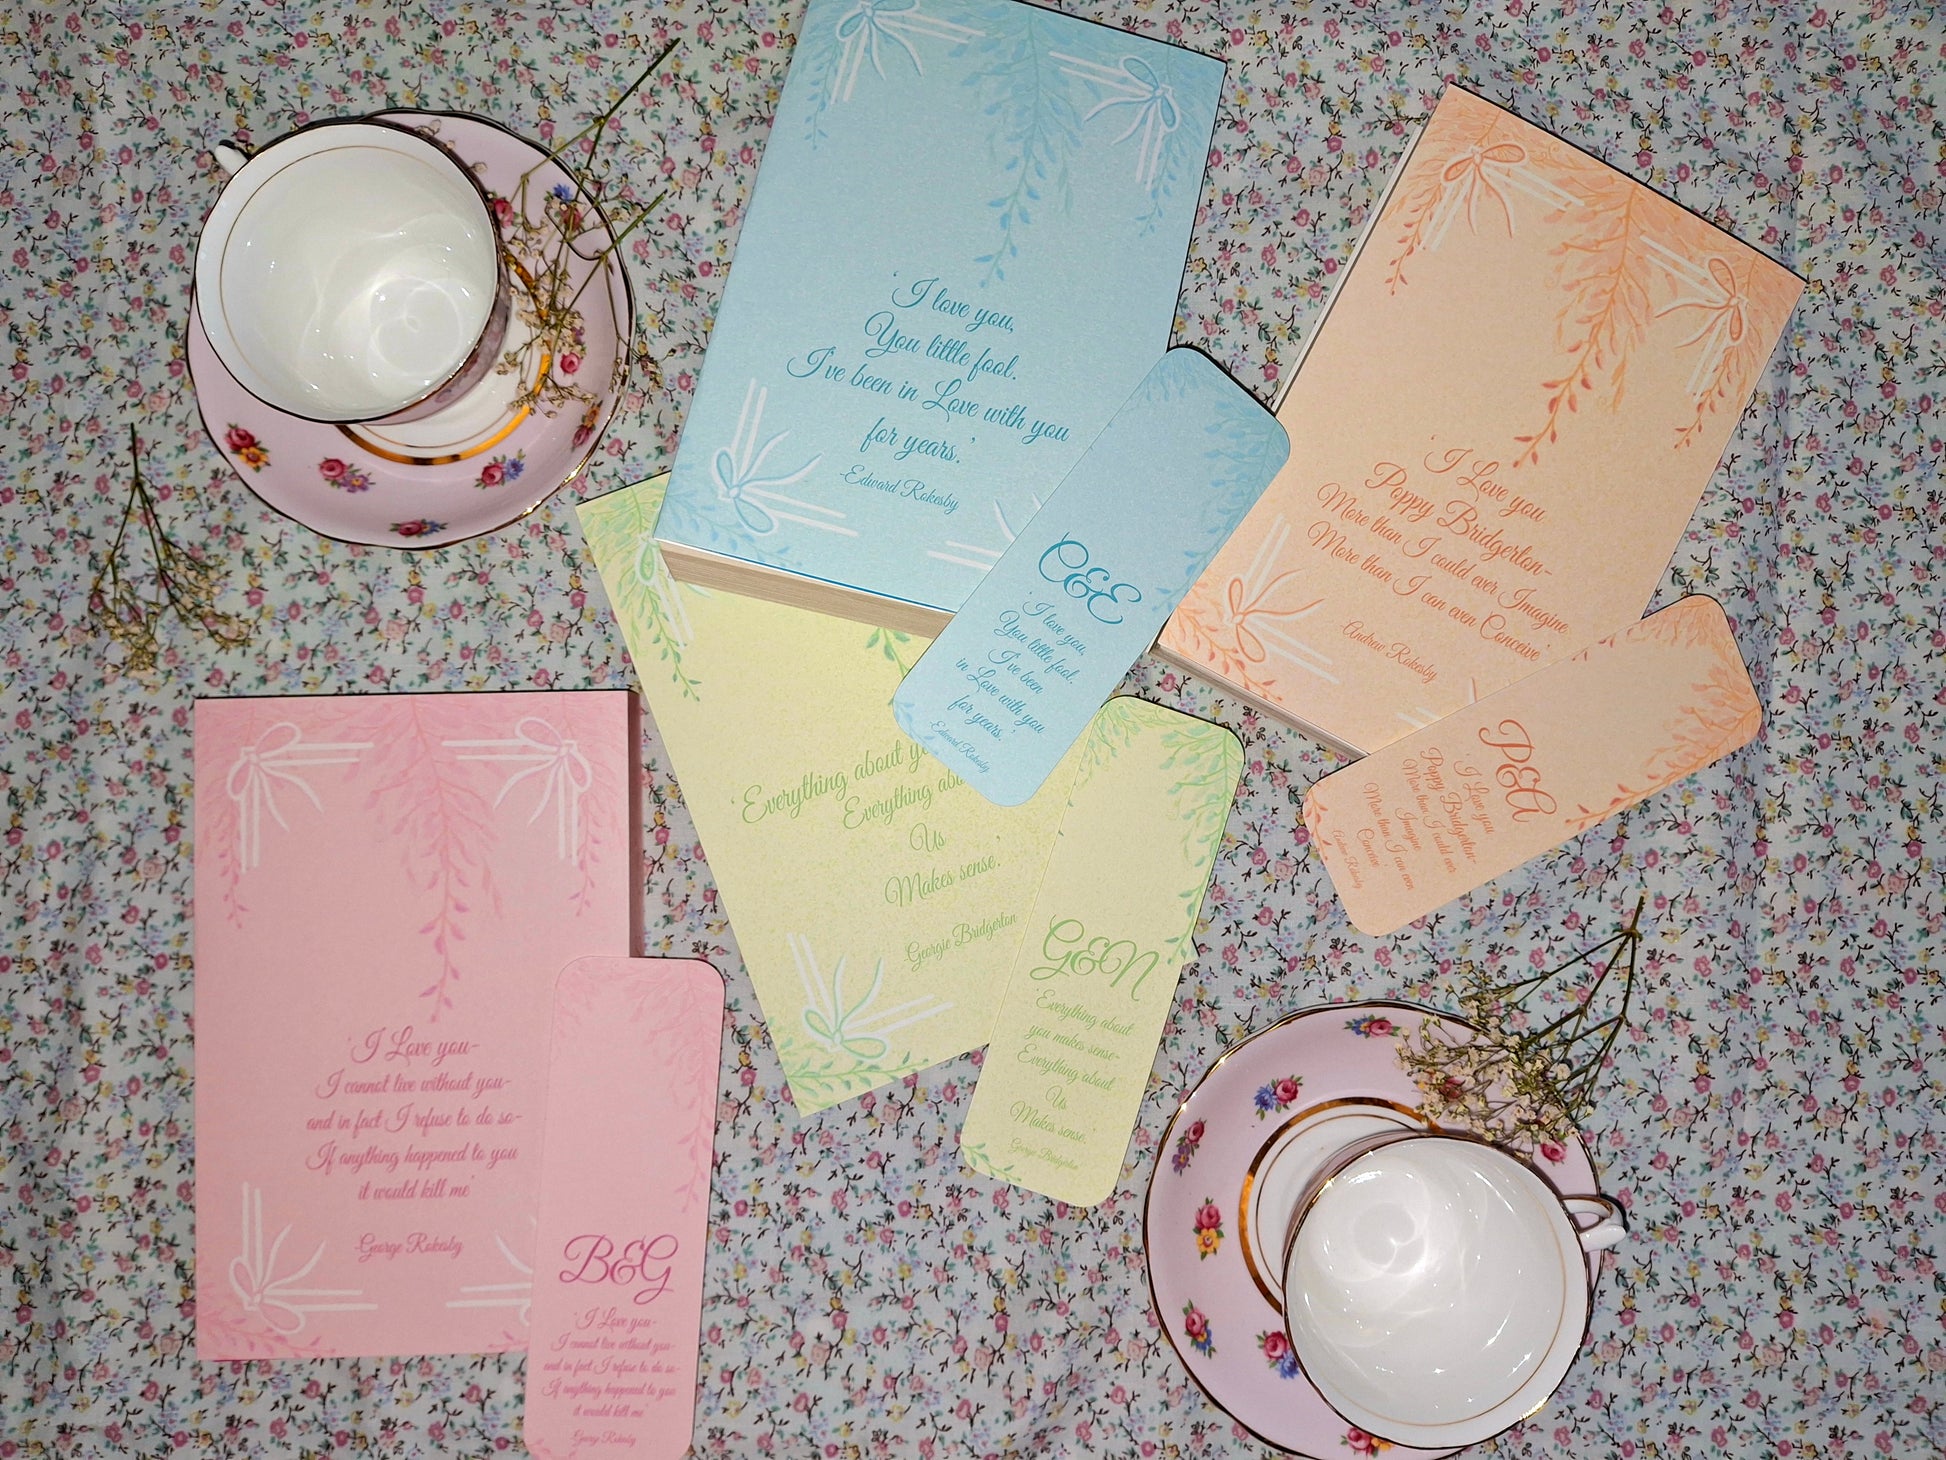 'I love you,
You little fool.
I've been in Love with you
for years.'
-Edward Rokesby
C&E
'I love you,
You little fool.
I've been
in Love with you
for years.'
-Edward Rokesby
'I Love you
Poppy Bridgerton-
More than I could ever Imagine
More than I can even Conceive'
Andrew Rokesby
P&A
'I Love you
Poppy Bridgerton-
More than I could ever
Imagine
More than I can even
Conceive'
Andrew Rokesby
'Everything about
Everything
Us
Makes sense.'
Georgie Bridgerton
G&N
'Everything about
you makes sense-
Everything about
Us
Makes sense.'
Georgie Bridgerton
'I Love you-
I cannot live without you-
and in fact I refuse to do so-
If anything happened to you
it would kill me'
George Rokesby
B&G
'I Love you-
I cannot live without you-
and in fact I refuse to do so-
If anything happened to you
it would kill me'
George Rokesby